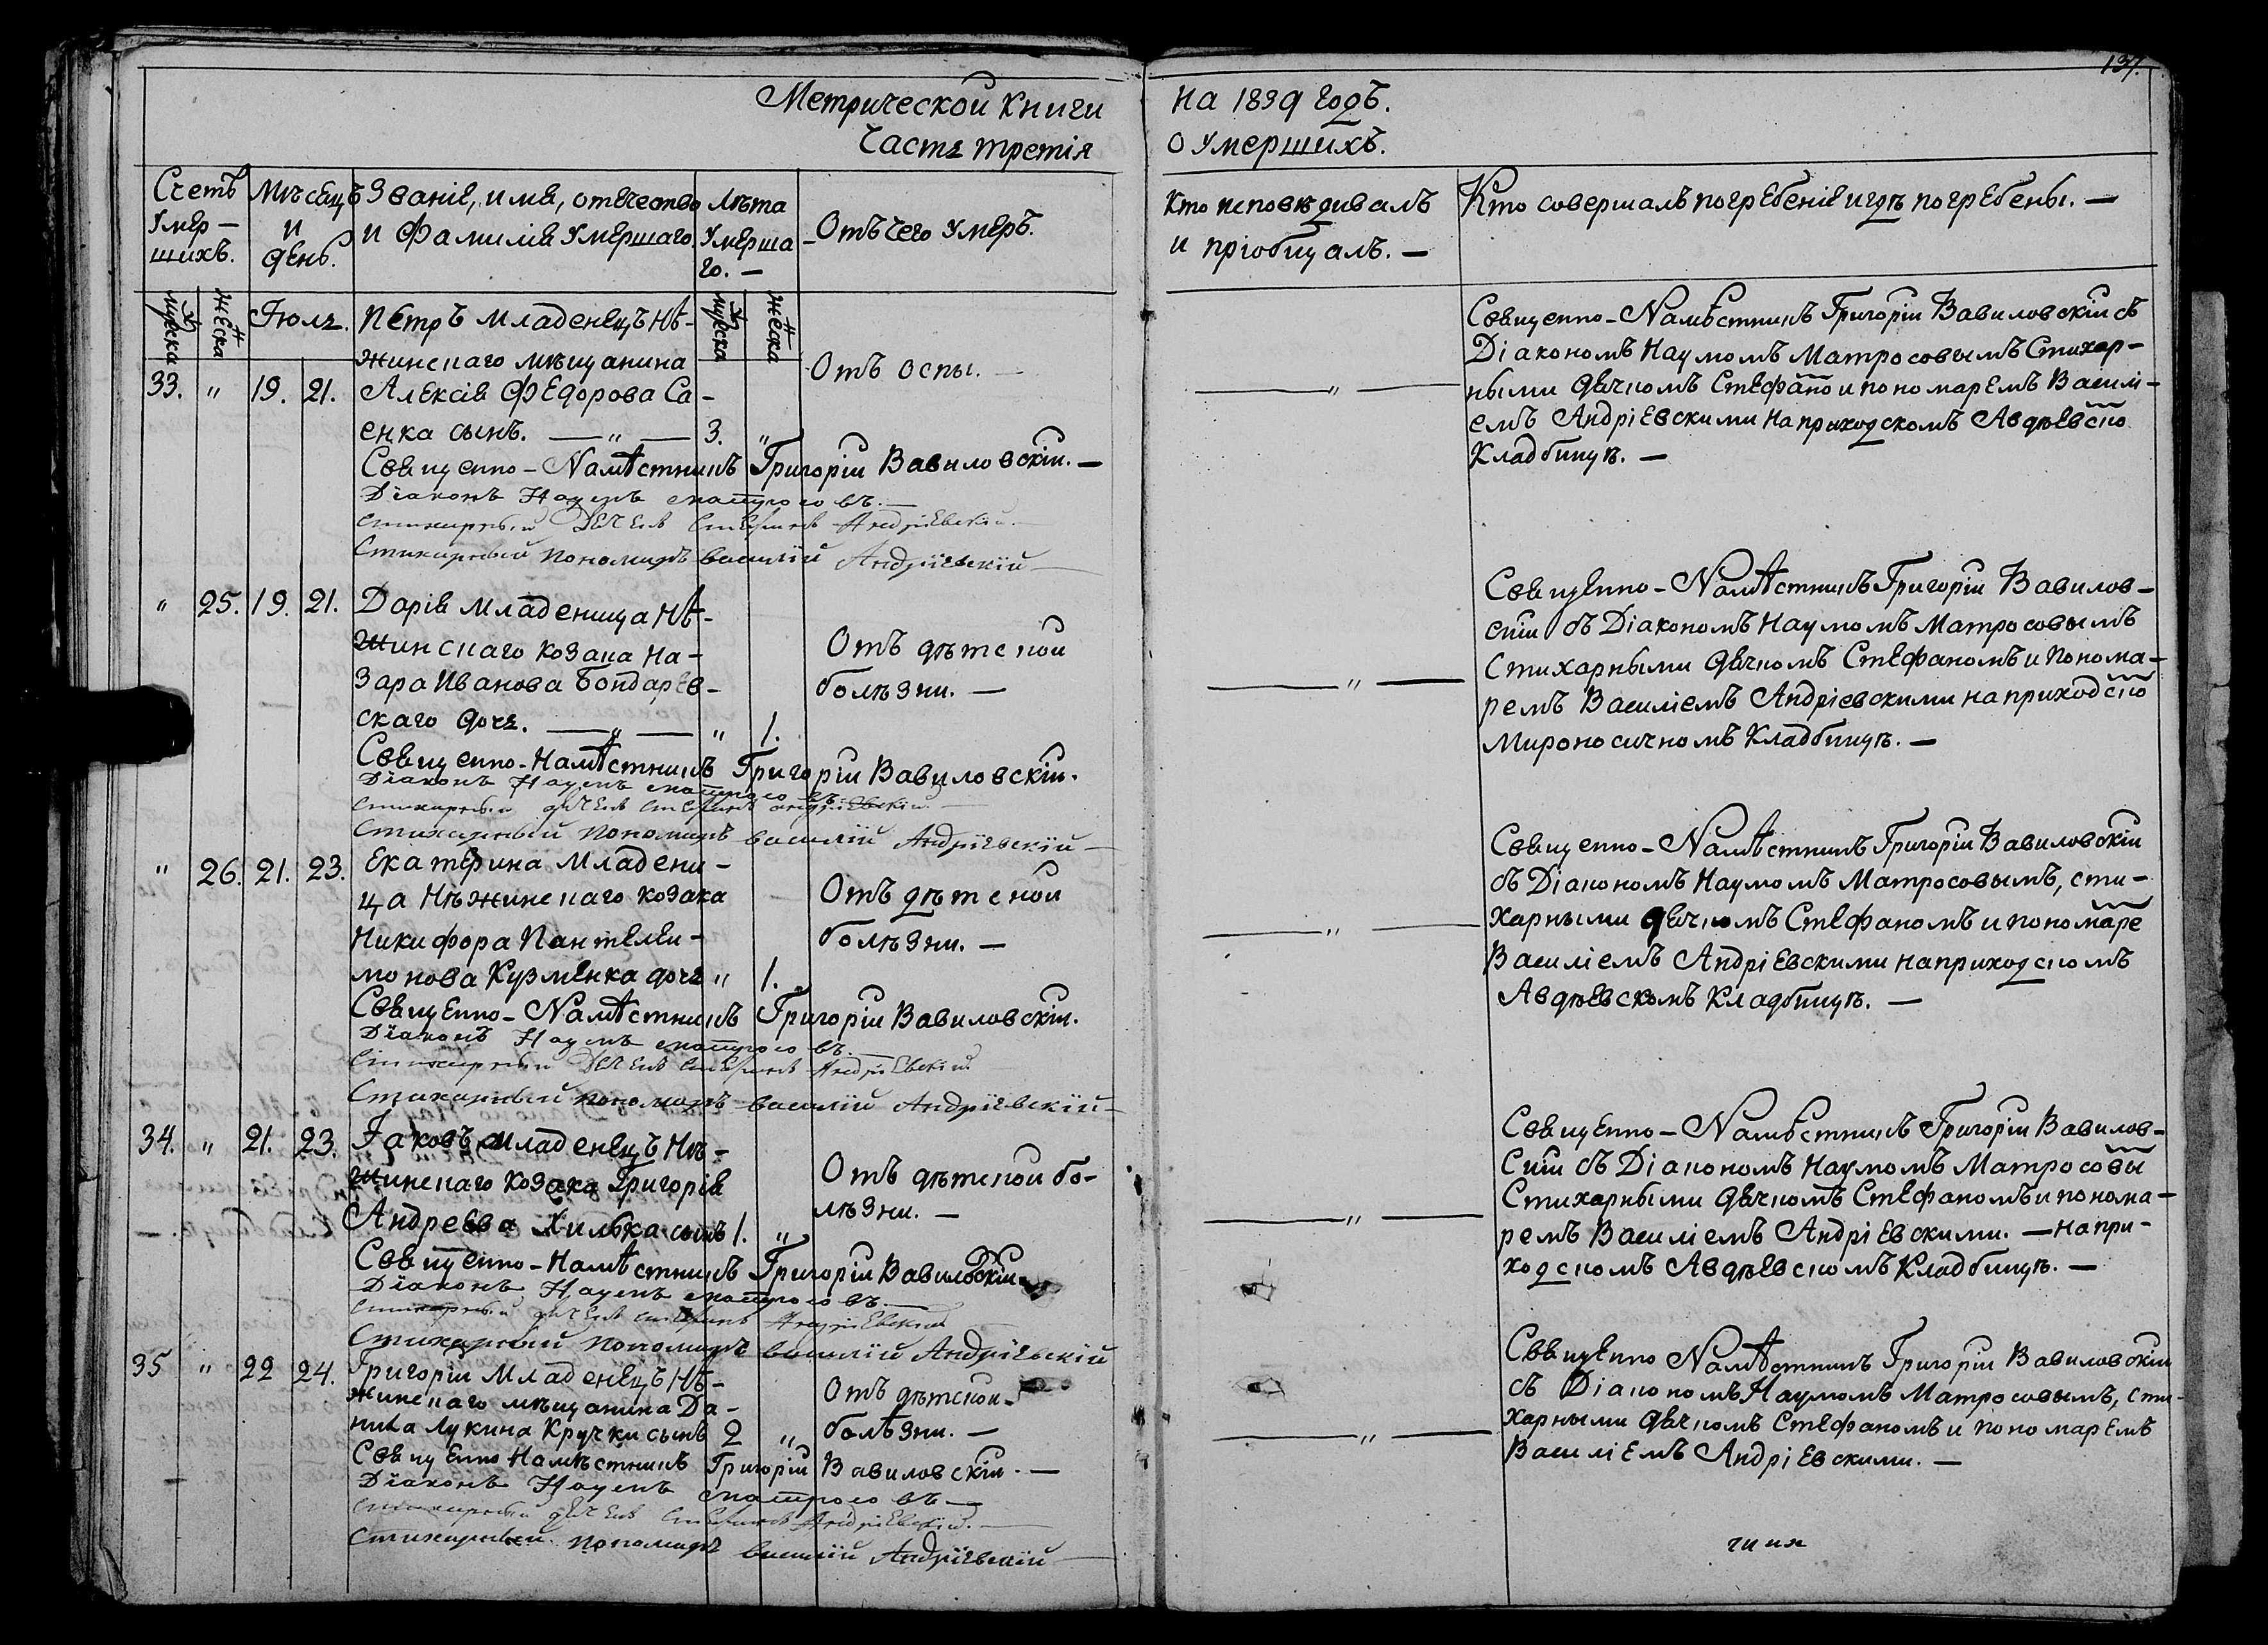 137.
Метрической Книги
На 1839 годъ.
Часть третія
О Умершихъ.
Счетъ Умер-шихъ.
Мѣсяцъ и день.
Званіе, имя, отечество
и Фамилія Умершаго
Лѣта Умерша-го. —
Отъ чего Умеръ.
Кто исповѣдивалъ
и пріобщалъ. —
Кто совершалъ погребеніе и гдѣ погребены. —
мужска женска Іюль. мужска женска
Петръ младенецъ Нѣ-
жинскаго мѣщанина
33. " 19. 21. Алексія Федорова Са-
енка сынъ. —"— 3. "
Отъ оспы. —
—"—
Священно-Намѣстникъ Григорій Вавиловскій съ
Діакономъ Наумомъ Матросовымъ Стихар-
ными дячкомъ Стефано и пономаремъ Василі-
емъ Андріевскими на приходскомъ Авдѣевско
Кладбищѣ. —
Священно-Намѣстникъ Григорій Вавиловскій. —
Діаконъ Наумъ Матросовъ. —
Стихарный Дячекъ Стефанъ Андріевскій.
Стихарный Пономарь Василій Андріевскій —
" 25. 19. 21. Дарія младеница Нѣ-
жинскаго козака На-
зара Иванова Бондарев-
скаго дочь. —"— " 1.
Отъ дѣтской
болѣзни. —
—"—
Священно-Намѣстникъ Григорій Вавилов-
скій съ Діакономъ Наумомъ Матросовымъ
Стихарными дячкомъ Стефаномъ и понома-
ремъ Василіемъ Андріевскими на приходско
Мироносичномъ Кладбищѣ. —
Священно-Намѣстникъ Григорій Вавиловскій.
Діаконъ Наумъ Матросовъ. —
Стихарный дячекъ Стефанъ Андріевскій. —
Стихарный Пономарь Василій Андріевскій —
" 26. 21. 23. Екатерина Младени-
ца Нѣжинскаго козака
Никифора Пантелеи-
монова Кузменка дочь " 1.
Отъ дѣтской
болѣзни. —
—"—
Священно-Намѣстникъ Григорій Вавиловскій
съ Діакономъ Наумомъ Матросовымъ, сти-
харными дячкомъ Стефаномъ и пономаре
Василіемъ Андріевскими на приходскомъ
Авдѣевскомъ Кладбищѣ. —
Священно-Намѣстникъ Григорій Вавиловскій.
Діаконъ Наумъ Матросовъ. —
Стихарный Дячекъ Стефанъ Андріевскій.
Стихарный Пономарь Василій Андріевскій —
34. " 21. 23. Іаковъ младенецъ Нѣ-
жинскаго козака Григорія
Андреева Хилька сынъ 1. "
Отъ дѣтской бо-
лѣзни. —
—"—
Священно-Намѣстникъ Григорій Вавилов-
скій съ Діакономъ Наумомъ Матросовы
Стихарными дячкомъ Стефаномъ и понома-
ремъ Василіемъ Андріевскими. — на при-
ходскомъ Авдѣевскомъ Кладбищѣ. —
Священно-Намѣстникъ Григорій Вавиловскій
Діаконъ Наумъ Матросовъ. —
Стихарный дячекъ Стефанъ Андріевскій
Стихарный Пономарь Василій Андріевскій
35 " 22 24. Григорій Младенецъ Нѣ-
жинскаго мѣщанина Да-
нила Лукина Кручки сынъ 2 "
Отъ дѣтской
болѣзни. —
—"—
Священно Намѣстникъ Григорій Вавиловскій
съ Діакономъ Наумомъ Матросовымъ, сти-
харными дячкомъ Стефаномъ и пономаремъ
Василіемъ Андріевскими. —
Священно Намѣстникъ Григорій Вавиловскій. —
Діаконъ Наумъ Матросовъ —
Стихарный дячекъ Стефанъ Андріевскій. —
Стихарный Пономарь Василій Андріевскій —